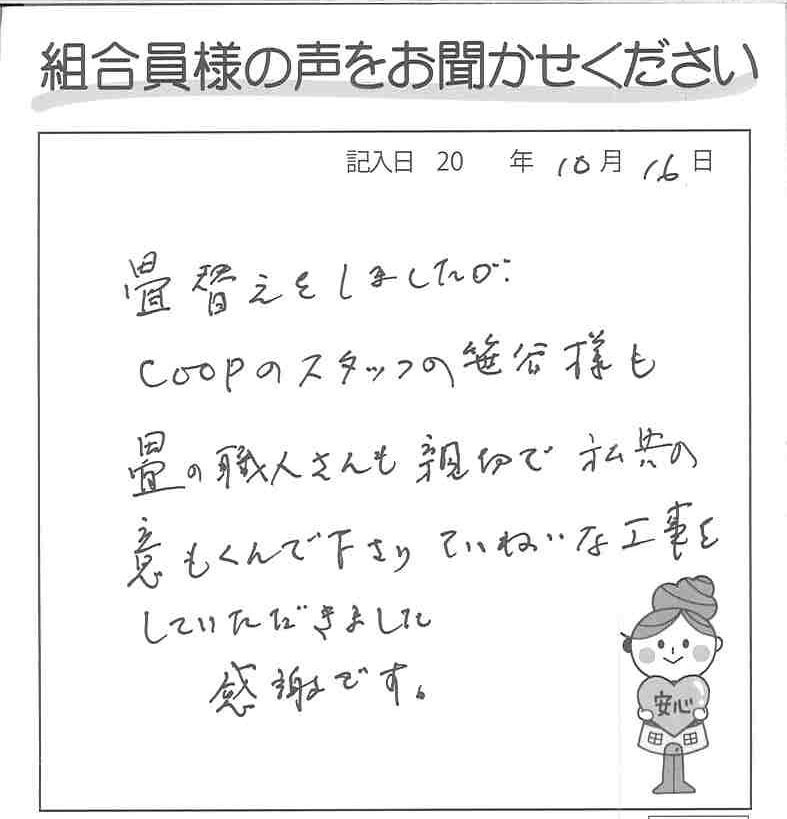 組合員様の声をお聞かせください
記入日 20 年 10月 16日
畳替えをしましたが、
COOPのスタッフの笹谷様も
畳の職人さんも親切で私共の
意もくんで下さりていねいな工事を
していただきました
感謝です。
安心